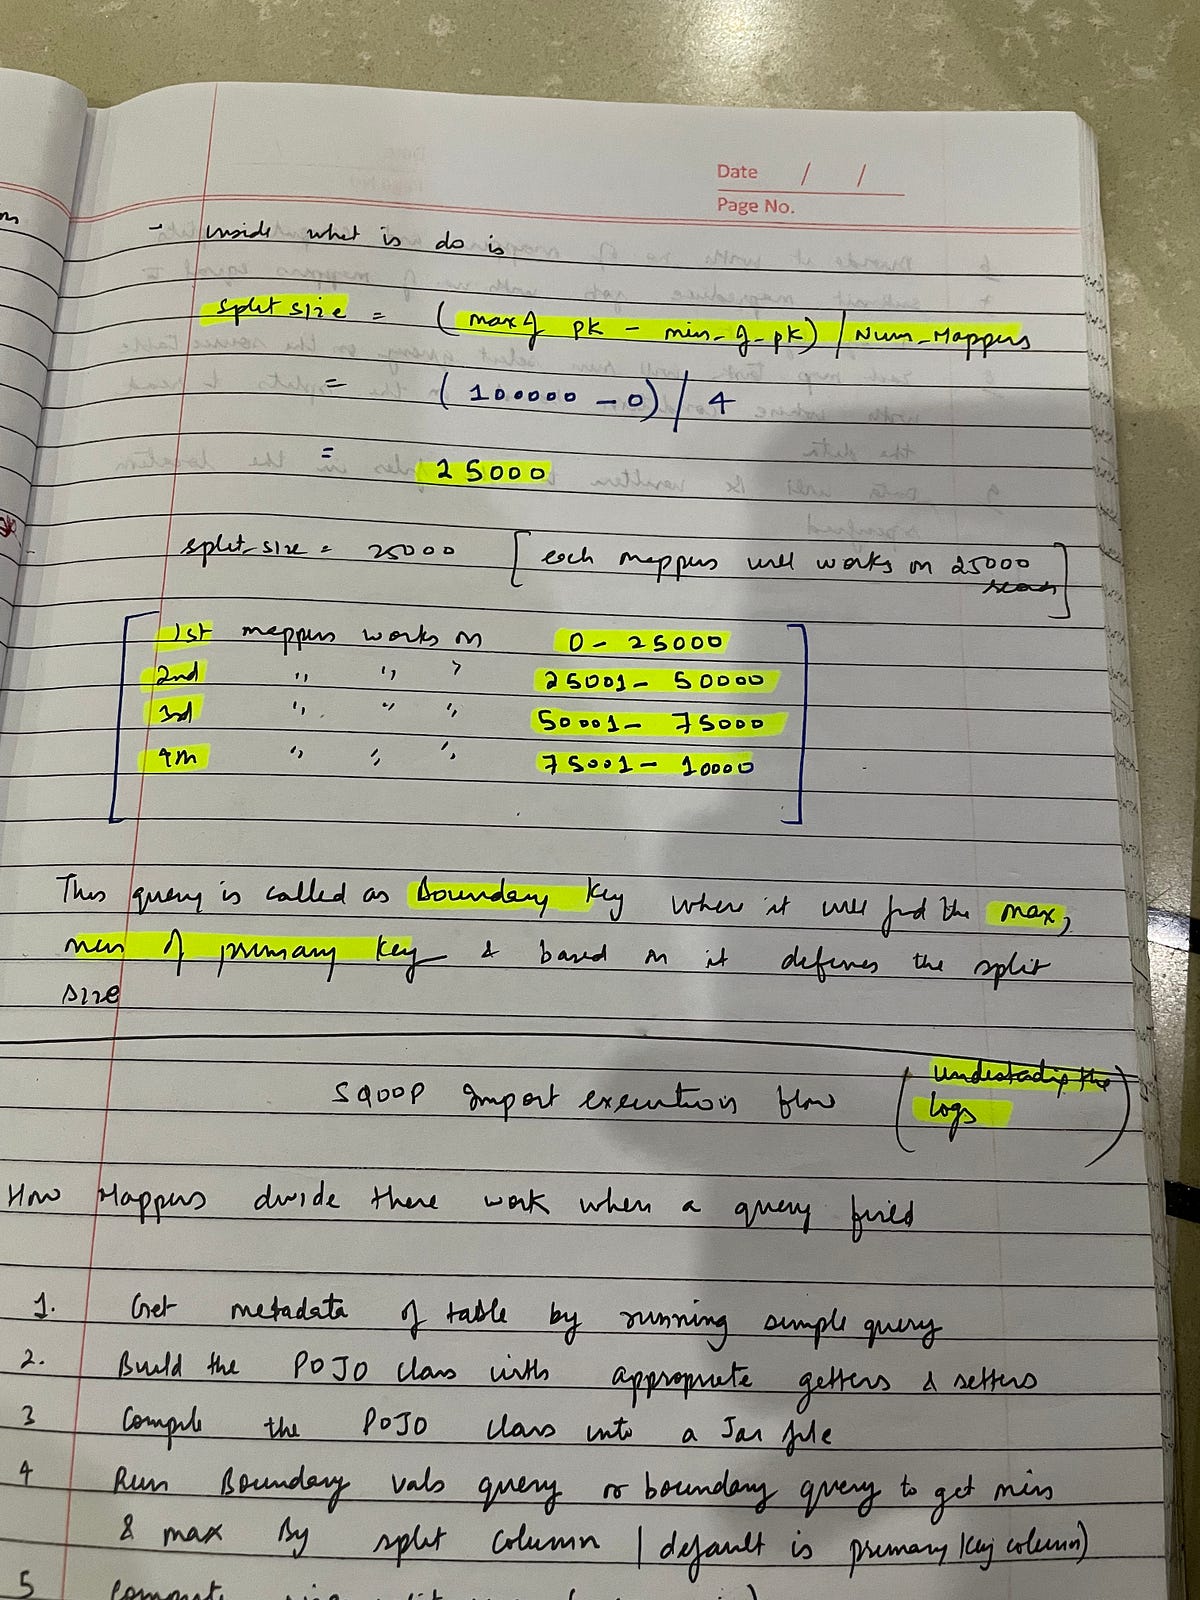 Date / /
Page No.
- inside what is do is
split size = (max of pk - min_of_pk) / Num_Mappers
= (100000 - 0) / 4
= 25000
split_size = 25000 [each mappers will works on 25000]
1st mappers works on 0 - 25000
2nd " " " 25001 - 50000
3rd " " " 50001 - 75000
4th " " " 75001 - 10000
This query is called as Boundary Key where it will find the max,
min of primary key & based on it defines the split
size
SQOOP Import execution flow (undestadig the
logs)
How Mappers divide there work when a query fired
1. Get metadata of table by running simple query
2. Build the POJO class with appropriate getters & setters
3 Compile the POJO class into a Jar file
4 Run Boundary vals query or boundary query to get min
& max By split column (default is primary key column)
5 Compute